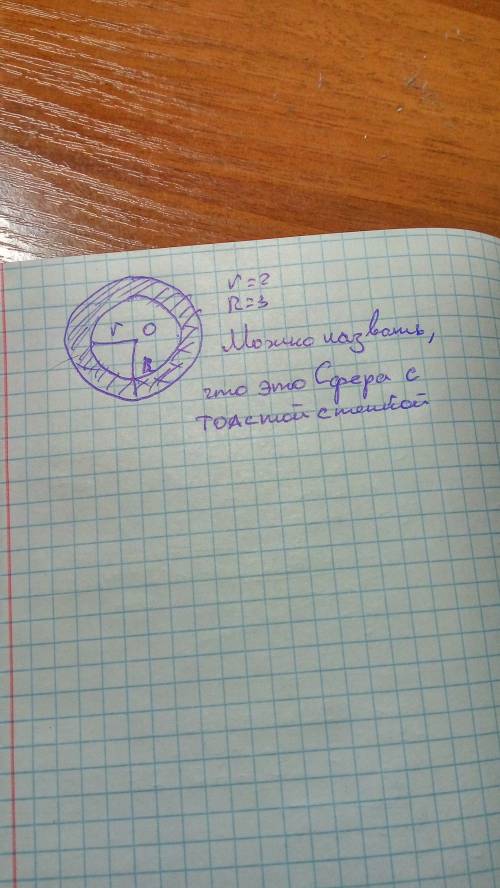 r O
R
r=2
R=3
Можно назвать,
что это Сфера с
толстой стенкой